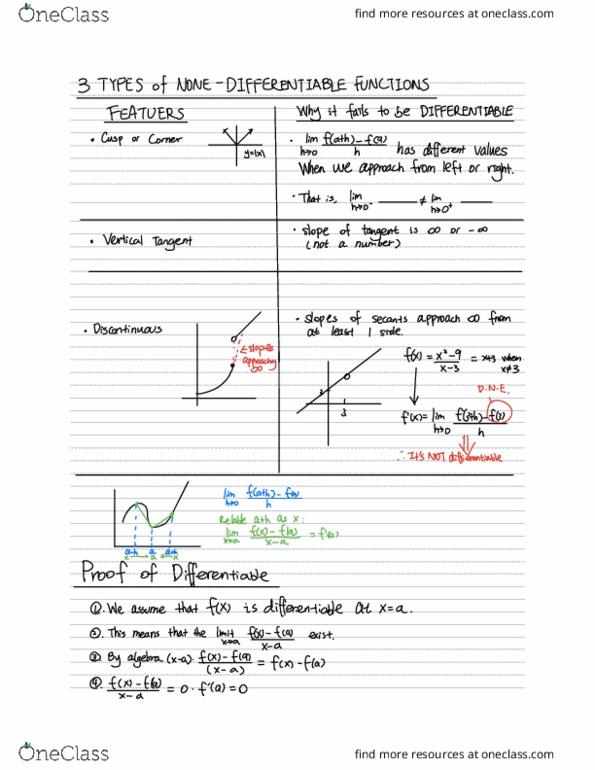 OneClass
find more resources at oneclass.com
3 TYPES of NONE-DIFFERENTIABLE FUNCTIONS
FEATUERS
Why it fails to be DIFFERENTIABLE
• Cusp or Corner
y=|x|
• lim h→0 f(a+h)-f(a) / h has different values
When we approach from left or right.
• That is, lim h→0⁻ ____ ≠ lim h→0⁺ ____
• Vertical Tangent
• slope of tangent is ∞ or -∞
(not a number)
• Discontinuous
slopes
approaching
∞
• slopes of secants approach ∞ from
at least 1 side.
f(x) = x²-9 / x-3 = x+3 when x≠3
3
3
D.N.E.
f'(x) = lim h→0 f(3+h)-f(3) / h
∴ It's NOT differentiable
a-h a a+h
x → a ← x
lim h→0 f(a+h)-f(a) / h
Relable a+h as x:
lim x→a f(x)-f(a) / x-a = f'(a)
Proof of Differentiable
①. We assume that f(x) is differentiable at x=a.
②. This means that the limit x→a f(x)-f(a) / x-a exist.
③ By algebra (x-a)· f(x)-f(a) / (x-a) = f(x)-f(a)
④. f(x)-f(a) / x-a = 0·f'(a)=0
OneClass
find more resources at oneclass.com